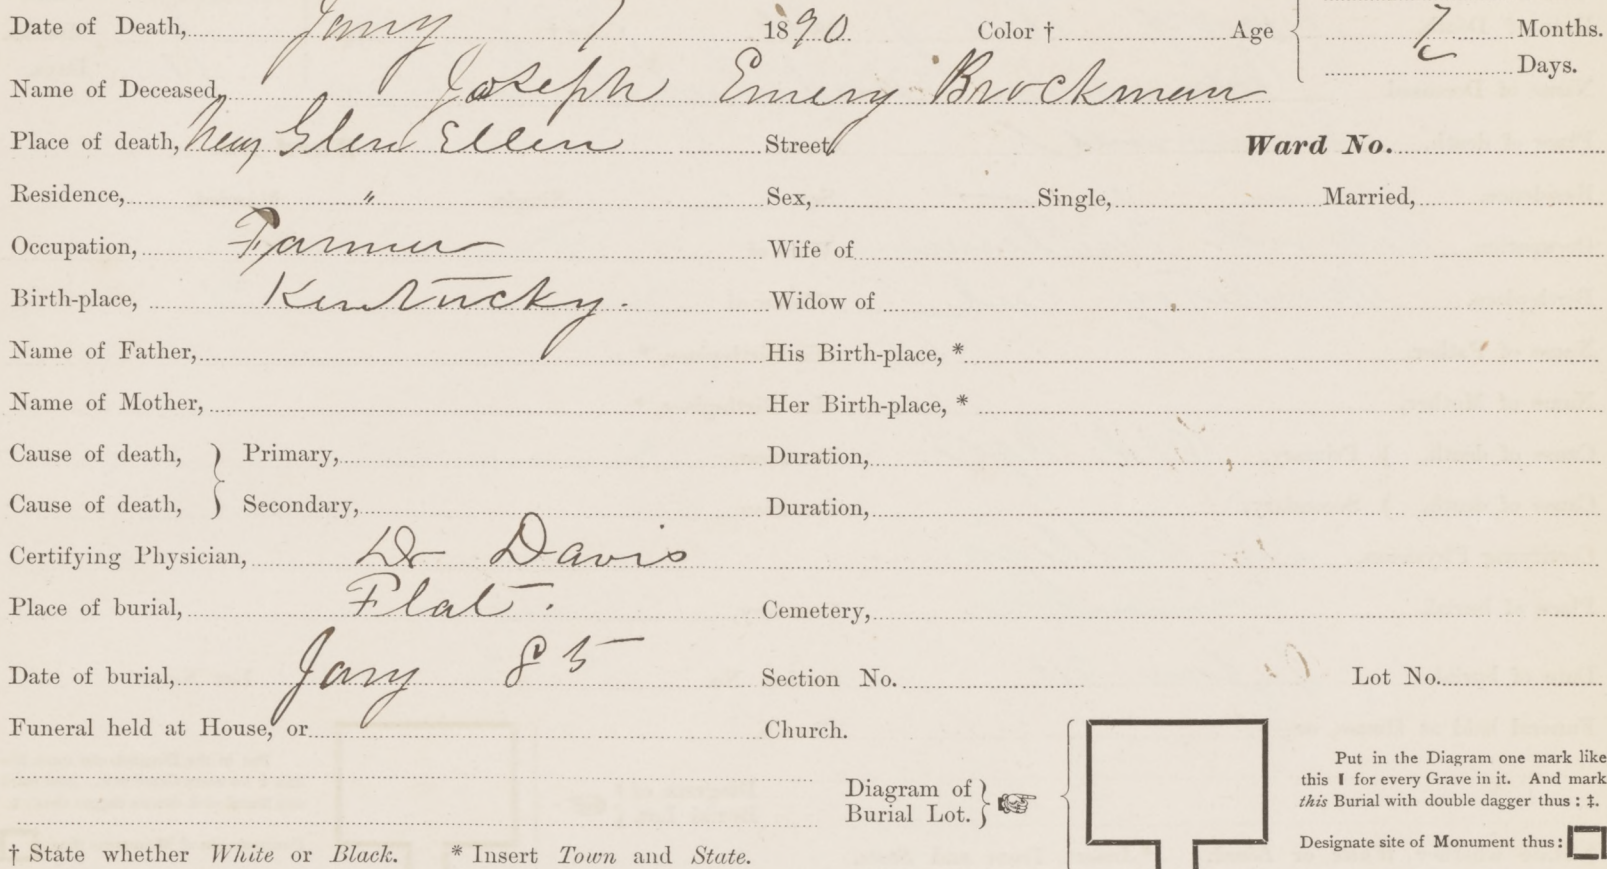 Date of Death, Jany 7 1890 Color † Age 7 Months.
Days.
Name of Deceased, Joseph Emery Brockman
Place of death, Near Glen Ellen Street Ward No.
Residence, " Sex, Single, Married,
Occupation, Farmer Wife of
Birth-place, Kentucky. Widow of
Name of Father, His Birth-place, *
Name of Mother, Her Birth-place, *
Cause of death, } Primary, Duration,
Cause of death, } Secondary, Duration,
Certifying Physician, Dr Davis
Place of burial, Flat. Cemetery,
Date of burial, Jany 8 Section No. Lot No.
Funeral held at House, or Church.
Diagram of
Burial Lot. }
Put in the Diagram one mark like
this I for every Grave in it. And mark
this Burial with double dagger thus : ‡.
Designate site of Monument thus :
† State whether White or Black. * Insert Town and State.